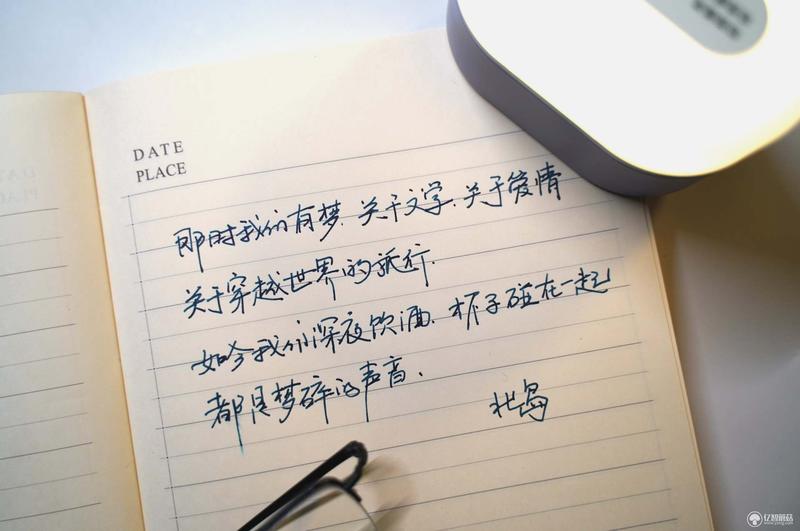 DATE
PLACE
那时我们有梪,关于文学,关于爱情
关于穿越世界的旅行.
如今我们深夜饮酒,杯子碰在一起
都是梦碎的声音.
北岛
亿智蘑菇